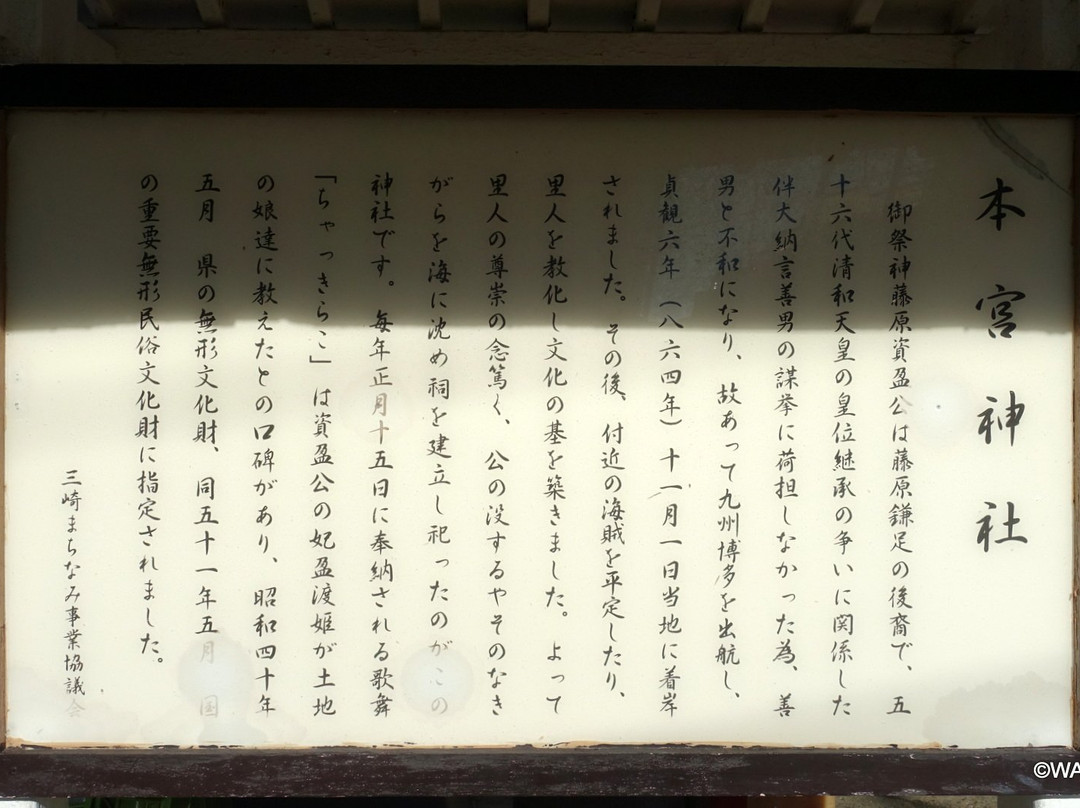 本宮神社
御祭神藤原資盈公は藤原鎌足の後裔で、五
十六代清和天皇の皇位継承の争いに関係した
伴大納言善男の謀挙に荷担しなかった為、善
男と不和になり、故あって九州博多を出航し、
貞観六年(八六四年)十一月一日当地に着岸
されました。その後、付近の海賊を平定したり、
里人を教化し文化の基を築きました。よって
里人の尊崇の念篤く、公の没するやそのなき
がらを海に沈め祠を建立し祀ったのがこの
神社です。毎年正月十五日に奉納される歌舞
「ちゃっきらこ」は資盈公の妃盈渡姫が土地
の娘達に教えたとの口碑があり、昭和四十年
五月 県の無形文化財、同五十一年五月 国
の重要無形民俗文化財に指定されました。
三崎まちなみ事業協議会
©WA